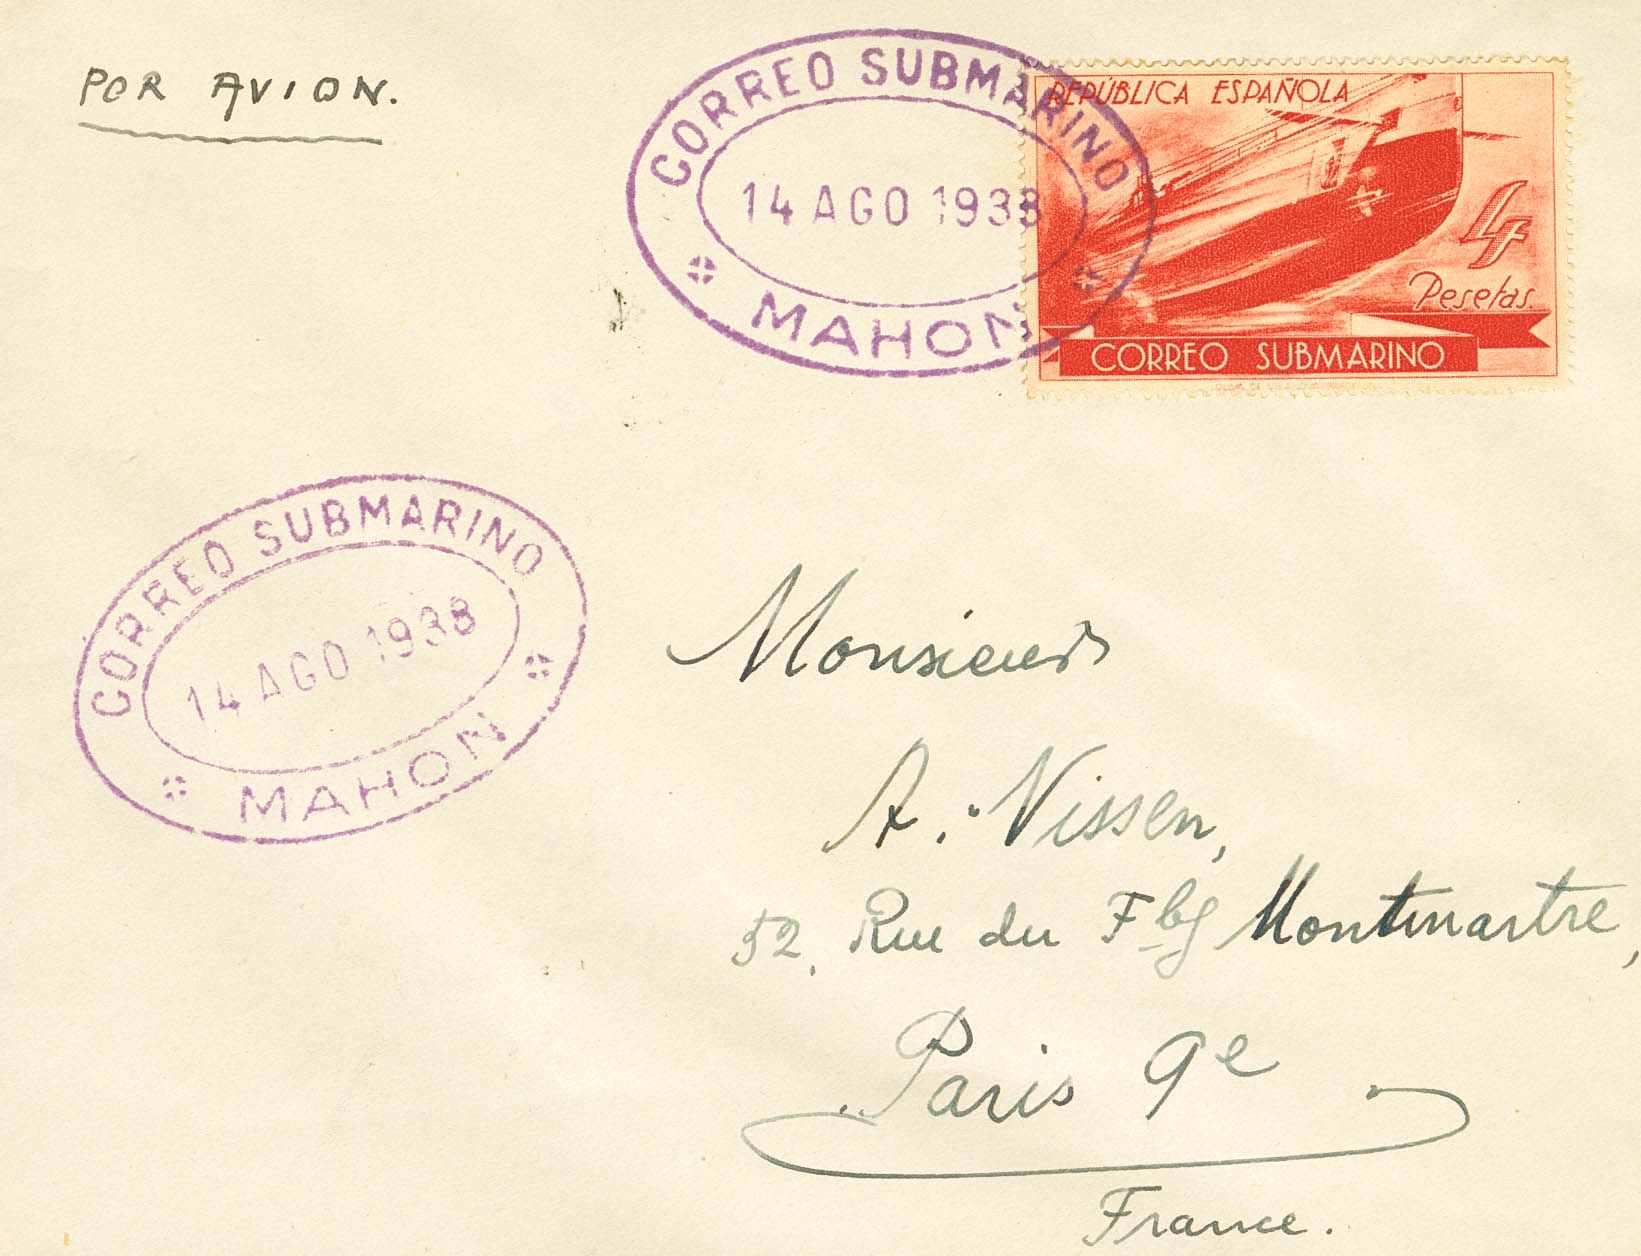 POR AVION.
CORREO SUBMARINO
14 AGO 1938
MAHON
REPÚBLICA ESPAÑOLA
4
Pesetas
CORREO SUBMARINO
CORREO SUBMARINO
14 AGO 1938
MAHON
Monsieur
A. Nissen,
52, Rue du Fbg Montmartre,
Paris 9e
France.